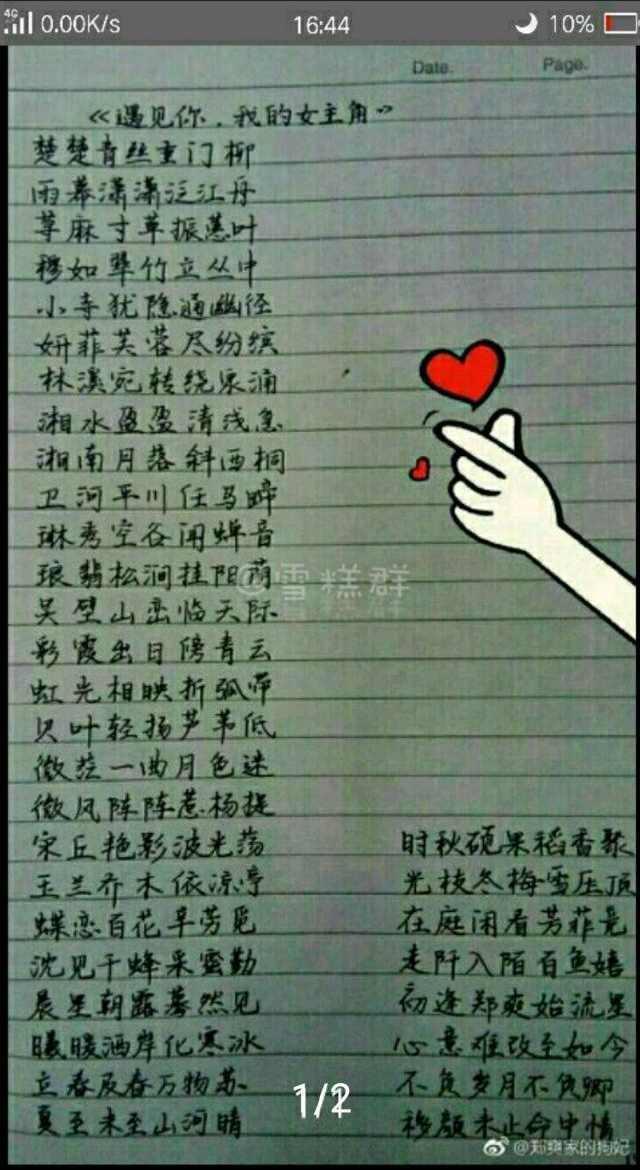 4G 0.00K/s 16:44 10%
Date. Page.
《遇见你，我的女主角》
楚楚青丝重门柳
雨幕潇潇泛江舟
荨麻寸草振蕙叶
穆如翠竹立丛中
小寺犹隐通幽径
妍菲芙蓉尽纷缤
林溪宛转绕泉涌
湘水盈盈清浅急
湘南月落斜西桐
卫河平川任马蹄
琳秀空谷闻蝉音
琅翡松涧挂阳荫
吴壁山峦临天际
彩霞出日傍青云
虹光相映折弧带
贝叶轻扬芦苇低
微茫一曲月色迷
微风阵阵惹杨堤
宋丘艳影波光荡
玉兰乔木依凉亭
蝶恋百花早劳觅
沈见千蜂采蜜勤
晨星朝露蓦然见
曦暖洒岸化寒冰
立春反春万物苏
夏至未至山河晴
时秋硕果稻香聚
光枝冬梅雪压顶
在庭闲看芳菲竞
走阡入陌百鱼嬉
初逢郑爽始流星
心意难改至如今
不负岁月不负卿
穆颜未止命中情
@雪糕群
1/2
@郑爽家的狗妃